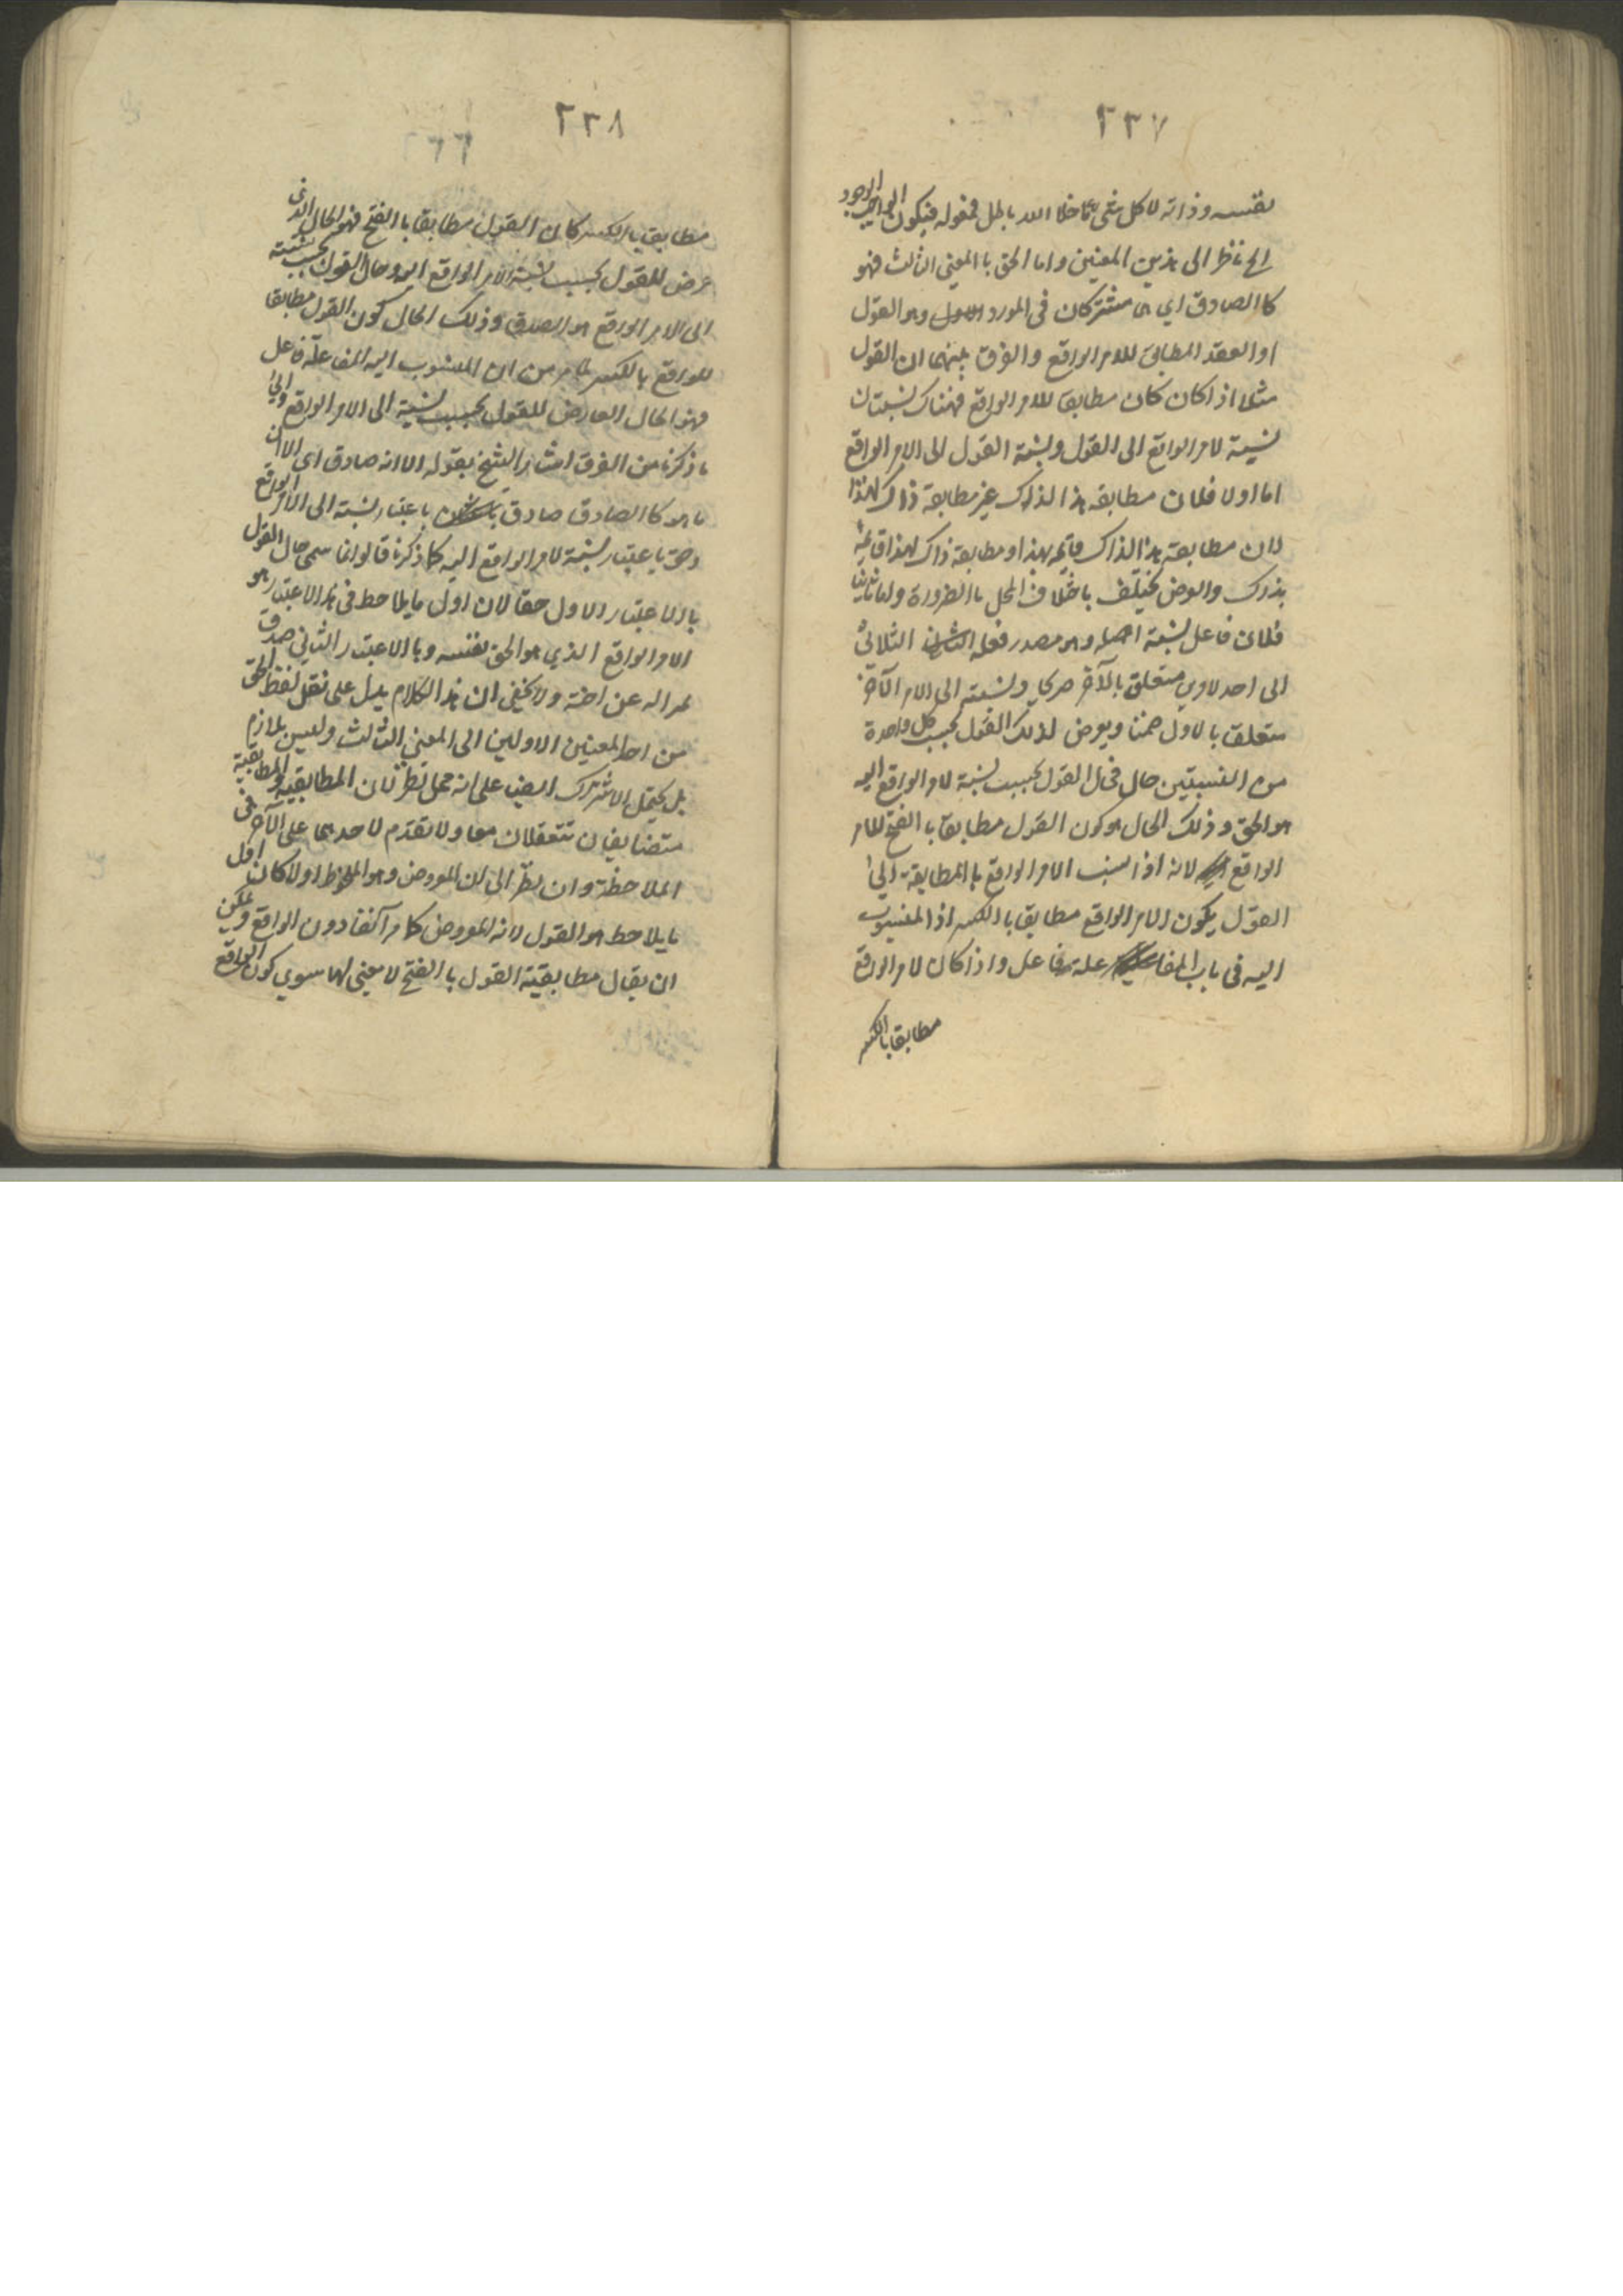 ٢٣٧
بنفسه وذاته لا كل شئ ما خلا الله باطل فقوله فيكون الواجب الوجود
الخ ناظر الى هذين المعنين واما الحق با المعنى الثالث فهو
كا الصادق اي هما مشتركان فى المورد وهو القول
او العقد المطابق للامر الواقع والفرق بينهما ان القول
مثلا اذا كان كان مطابقا للامر الواقع فهناك نسبتان
نسبة لامر الواقع الى القول ونسبة القول الى الامر الواقع
اما اولا فلان مطابقه هذا لذاك غير مطابقة ذاك لهذا
لان مطابقة هذا لذاك قائمة بهذا ومطابقة ذاك لهذا قائمة
بذاك والعرض يختلف باختلاف المحل با الضرورة واما ثانيا
فلان فاعل نسبة اصله وهو مصدر فعله الثلاثى
الى احد لاوي متعلق بالآخر صريحا ونسبته الى الامر الآخر
متعلق بالاول ضمنا ويعرض لذلك القول بحسب كل واحدة
من النسبتين حال فحال القول بحسب نسبة لامر الواقع اليه
هو الحق وذلك الحال هو كون القول مطابقا با الفتح للامر
الواقع لانه اذا نسب الامر الواقع با المطابقة الى
القول يكون الامر الواقع مطابقا با الكسر اذ المنسوب
اليه فى باب المفاعلة فاعل واذا كان لامر الواقع
مطابقا با الكسر
٢٣٨
مطابقا با الكسر كان القول مطابقا با الفتح فهو الحال الذى
عرض للقول بحسب نسبة الامر الواقع اليه وحال القول بحسب نسبته
الى الامر الواقع هو الصدق وذلك الحال كون القول مطابقا
للواقع بالكسر لما مر من ان المنسوب اليه المفاعلة فاعل
فهو الحال العارض للقول بحسب نسبة الى الامر الواقع والى
ما ذكرنا من الفرق اشار الشيخ بقوله الا انه صادق اي الا ان
ما هو كا الصادق صادق باعتبار نسبته الى الامر الواقع
وحق باعتبار نسبة لامر الواقع اليه كما ذكرنا قالوا انما سمى حال القول
بالاعتبار الاول حقا لان اول ما يلاحظ فى هذا الاعتبار هو
الامر الواقع الذي هو الحق بنفسه وبا الاعتبار الثاني صدق
تمييزا له عن اخته ولا يخفى ان هذا الكلام يدل على نقل لفظ الحق
من احد المعنين الاولين الى المعنى الثالث وليس بلازم
بل يحتمل الاشتراك ايضا على انه محل نظر لان المطابقية والمطابقية
متضايفان تتعقلان معا ولا تقدم لاحدهما على الآخر فى
الملاحظة وان نظر الى ان المعروض وهو الملاحظ اولا كان اول
ما يلاحظ هو القول لانه المعروض كما مر آنفا دون الواقع ويمكن
ان يقال مطابقية القول با الفتح لا معنى لها سوي كون الواقع